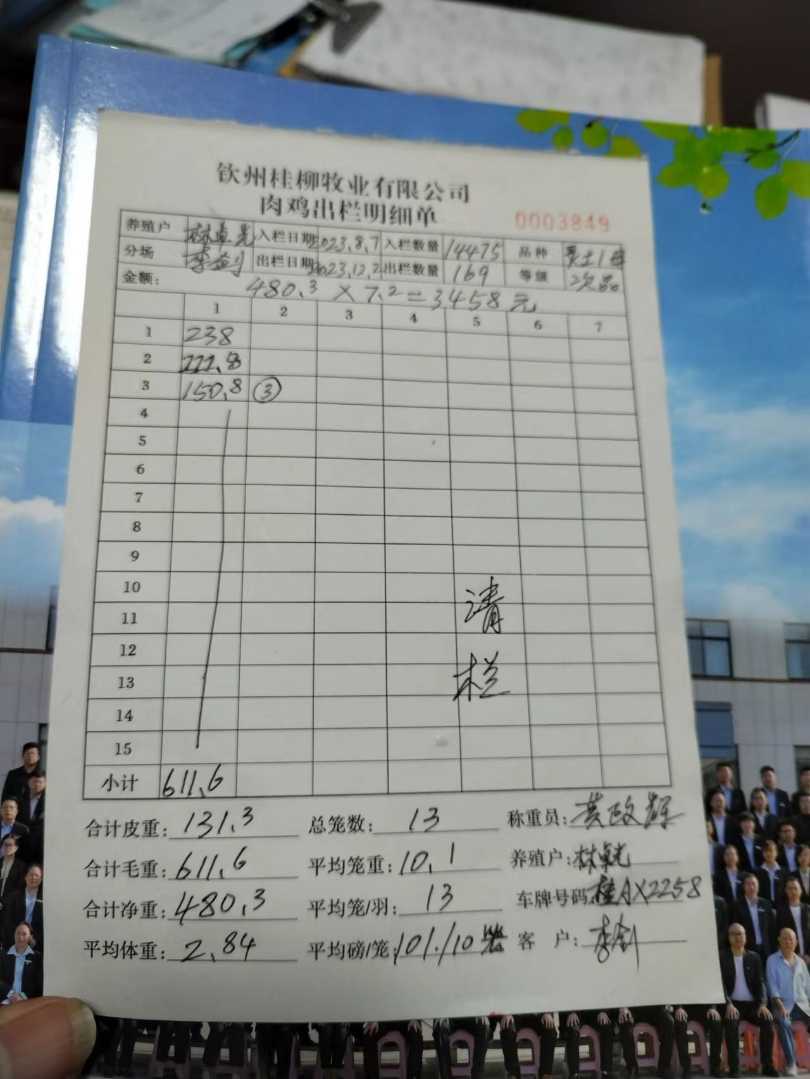 钦州桂柳牧业有限公司
肉鸡出栏明细单 0003849
养殖户 林卓光 入栏日期 2023,8,7 入栏数量 14475 品种
分场 出栏日期 2023,12,2 出栏数量 169 等级 次品
金额: 480,3 × 7,2 = 3458 元
1 2 3 4 5 6 7
1 238
2 222,8
3 150,8 ③
4
5
6
7
8
9
10
11 清
12
13 栏
14
15
小计 611,6
合计皮重: 131,3 总笼数: 13 称重员: 黄政辉
合计毛重: 611,6 平均笼重: 10,1 养殖户: 林卓光
合计净重: 480,3 平均笼/羽: 13 车牌号码: 桂AX2258
平均体重: 2,84 平均磅/笼: 101,/10 客 户: 李剑